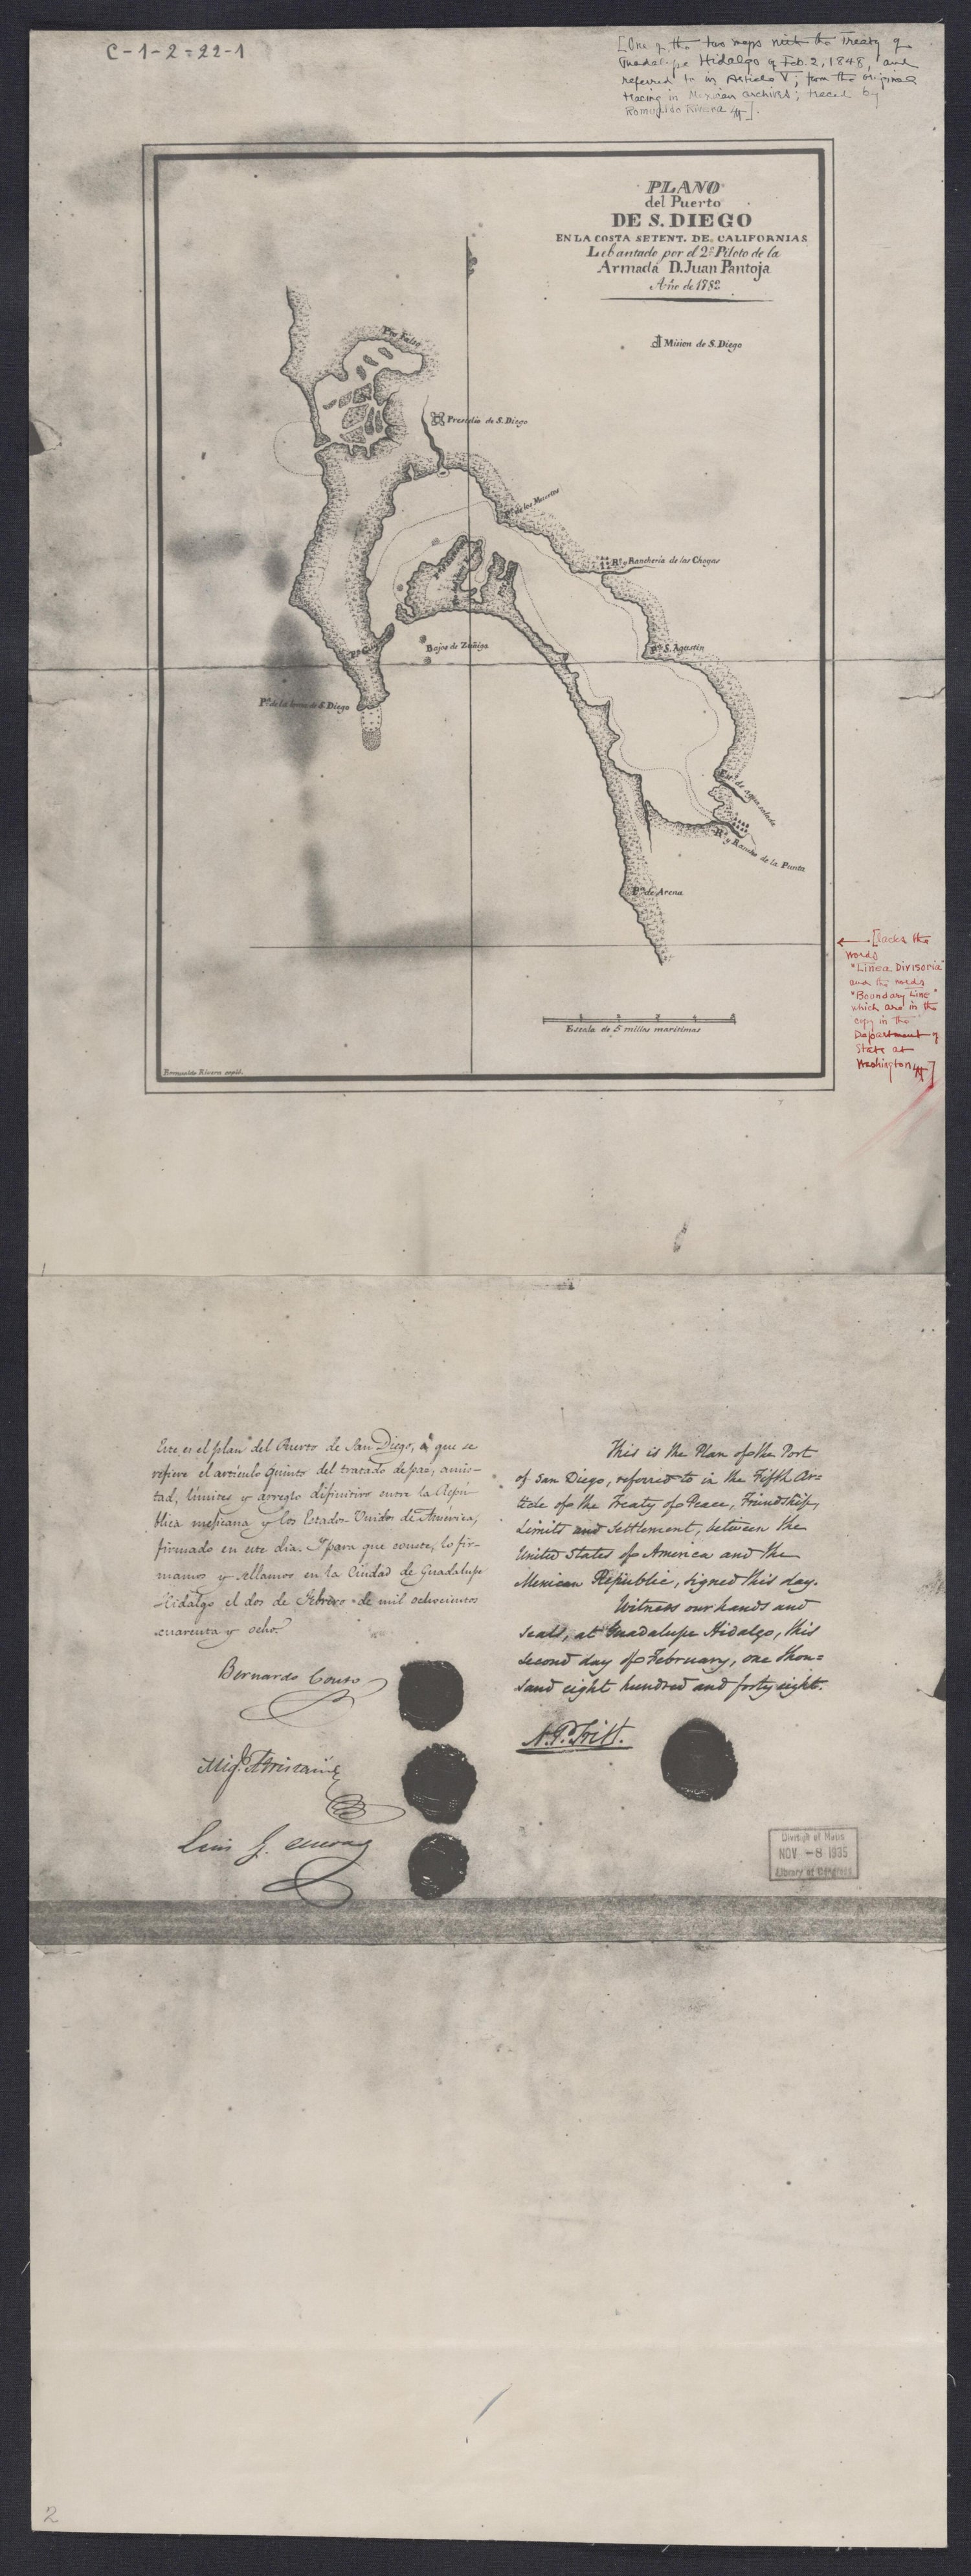 C-1-2=22-1
[One of the two maps with the Treaty of
Guadalupe Hidalgo of Feb. 2, 1848, and
referred to in Article V; from the original
tracing in Mexican archives; traced by
Romualdo Rivera
PLANO
del Puerto
DE S. DIEGO
EN LA COSTA SETENT. DE CALIFORNIAS
Lebantado por el 2º Piloto de la
Armada D. Juan Pantoja
Año de 1782
Mision de S. Diego
Pto Falso
Presidio de S. Diego
Pta de los Muertos
Ra y Rancheria de las Choyas
Bajos de Zuñiga
Pta S. Agustin
Pta de la loma de S. Diego
de agua salada
Ro y Rancho de la Punta
Pta de Arena
Escala de 5 millas maritimas
Romualdo Rivera copió.
[lacks the
words
"Linea Divisoria"
and the words
"Boundary Line"
which are in the
copy in the
Department of
State at
Washington
Este es el plan del Puerto de San Diego, á que se
refiere el artículo quinto del tratado de paz, amis-
tad, límites y arreglo definitivo entre la Repú-
blica mejicana y los Estados-Unidos de América,
firmado en este dia. Y para que conste, lo fir-
mamos y sellamos en la Ciudad de Guadalupe
Hidalgo el dos de Febrero de mil ochocientos
cuarenta y ocho.
Bernardo Couto
Migl. Atristain
Luis G. Cuevas
This is the Plan of the Port
of San Diego, referred to in the Fifth Ar=
ticle of the Treaty of Peace, Friendship,
Limits and Settlement, between the
United States of America and the
Mexican Republic, signed this day.
Witness our hands and
seals, at Guadalupe Hidalgo, this
second day of February, one thou=
sand eight hundred and forty eight.
N. P. Trist.
Division of Maps
NOV -8 1935
Library of Congress
1
2